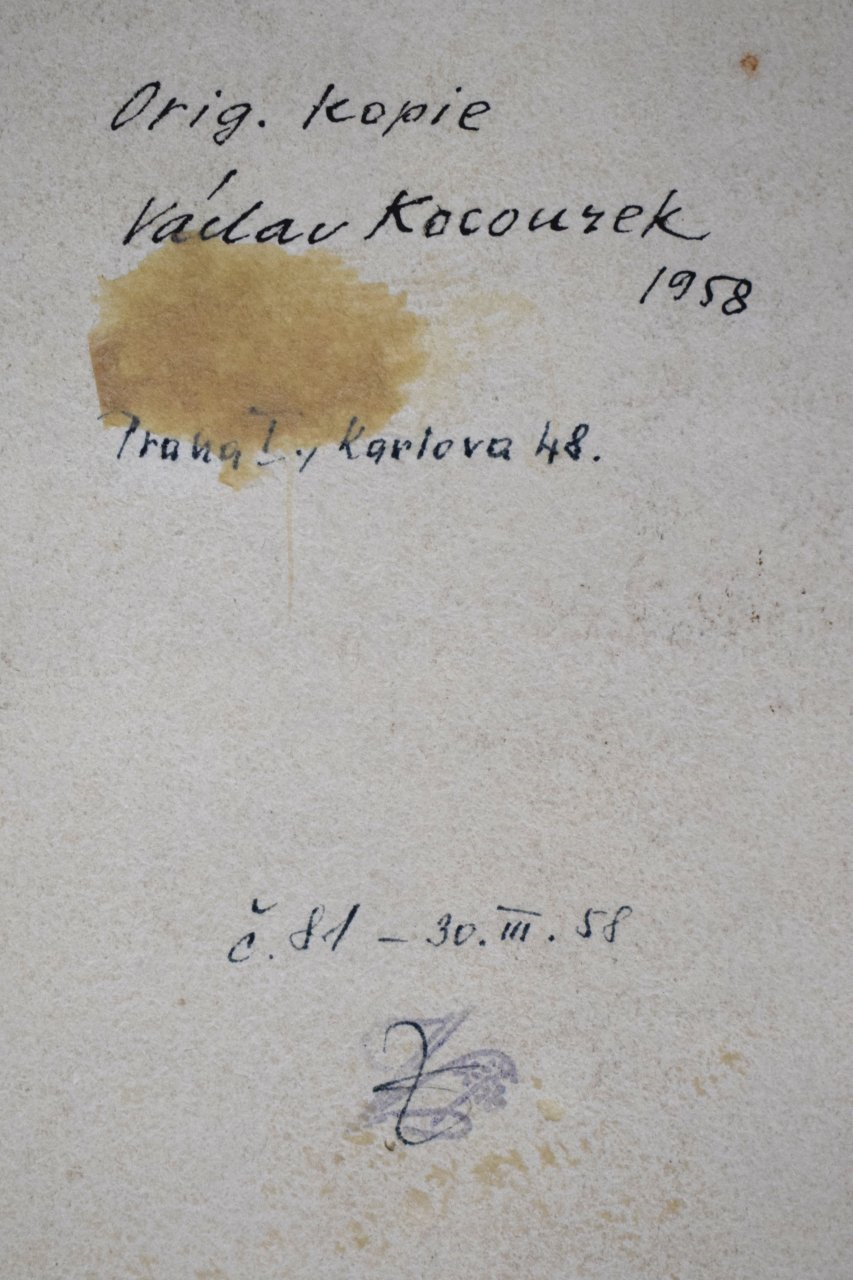 Orig. kopie
Václav Kocourek
1958
Praha I., Karlova 48.
č. 81 – 30. III. 58